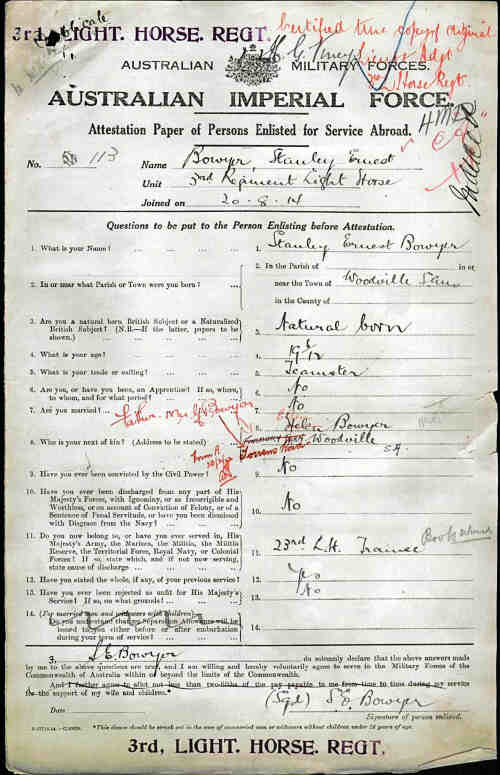 Duplicate
3rd, LIGHT. HORSE. REGT.
Certified true copy of original
AUSTRALIAN MILITARY FORCES.
Horse Regt.
AUSTRALIAN IMPERIAL FORCE.
Attestation Paper of Persons Enlisted for Service Abroad.
No. 113 Name Bowyer Stanley Ernest
Unit 3rd Regiment Light Horse
Joined on 20-8-14
Questions to be put to the Person Enlisting before Attestation.
1. What is your Name? ... ... ... 1. Stanley Ernest Bowyer
2. In or near what Parish or Town were you born? ... 2. In the Parish of in or
near the Town of Woodville
in the County of
3. Are you a natural born British Subject or a Naturalized
British Subject? (N.B.—If the latter, papers to be
shown.) ... ... ... 3. Natural born
4. What is your age? ... ... ... 4. 19
5. What is your trade or calling? ... ... 5. Teamster
6. Are you, or have you been, an Apprentice? If so, where,
to whom, and for what period? ... ... 6. No
7. Are you married? ... ... ... 7. No
father Bowyer
8. Who is your next of kin? (Address to be stated) ... 8. Helen Bowyer
Woodville
S.A.
Torrens Road
9. Have you ever been convicted by the Civil Power? 9. No
10. Have you ever been discharged from any part of His
Majesty's Forces, with Ignominy, or as Incorrigible and
Worthless, or on account of Conviction of Felony, or of a
Sentence of Penal Servitude, or have you been dismissed
with Disgrace from the Navy? ... ... 10. No
11. Do you now belong to, or have you ever served in, His
Majesty's Army, the Marines, the Militia, the Militia
Reserve, the Territorial Force, Royal Navy, or Colonial
Forces? If so, state which, and if not now serving,
state cause of discharge ... ... 11. 23rd L.H. Trainee
12. Have you stated the whole, if any, of your previous service? 12.
13. Have you ever been rejected as unfit for His Majesty's
Service? If so, on what grounds? ... ... 13. No
14. (For married men and widowers with children)—
Do you understand that no Separation Allowance will be
issued to you either before or after embarkation
during your term of service? ... ... 14.
3. S. E. Bowyer do solemnly declare that the above answers made
by me to the above questions are true, and I am willing and hereby voluntarily agree to serve in the Military Forces of the
Commonwealth of Australia within or beyond the limits of the Commonwealth.
And I further agree to allot not less than two-fifths of the pay payable to me from time to time during my service
for the support of my wife and children.*
Date (Sgd) S. E. Bowyer
Signature of person enlisted.
*This clause should be struck out in the case of unmarried men or widowers without children under 18 years of age.
3rd, LIGHT. HORSE. REGT.